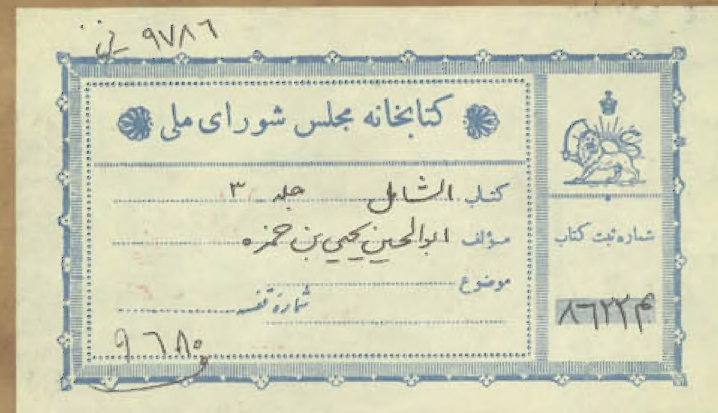 ۹۷۸۶
کتابخانه مجلس شورای ملی
کتاب الشامل جلد ۳
مؤلف ابوالحسین یحیی بن حمزه
موضوع
شماره قفسه
شماره ثبت کتاب
۸۶۲۲۴